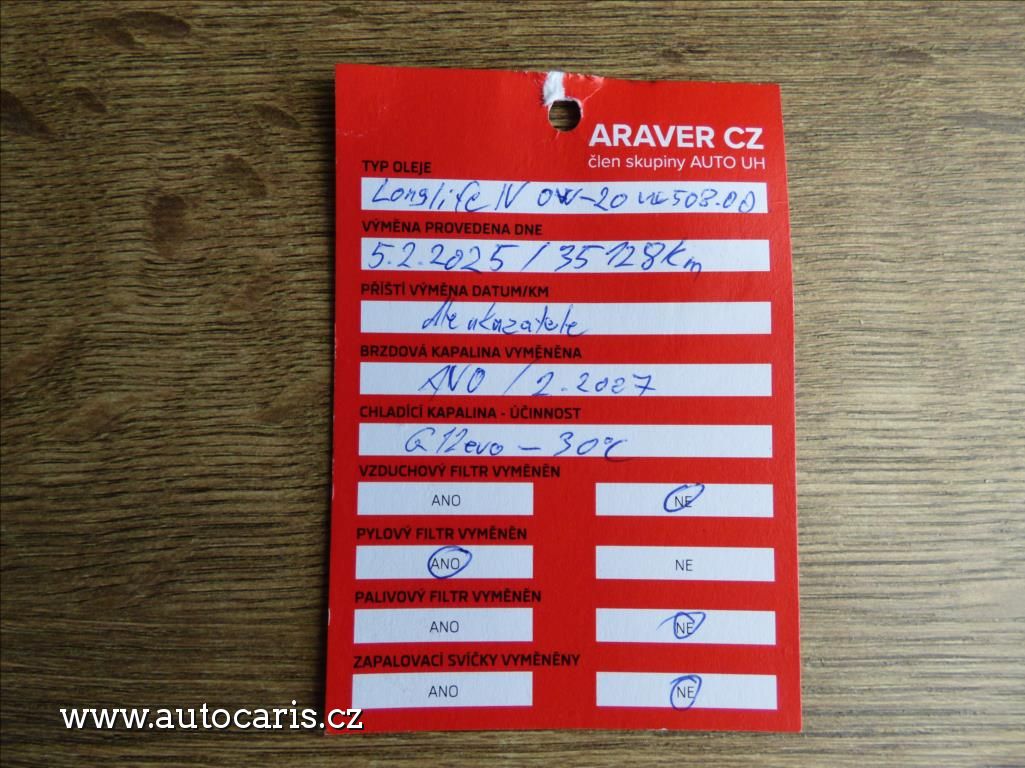 ARAVER CZ
člen skupiny AUTO UH
TYP OLEJE
Longlife IV 0W-20 VW 508.00
VÝMĚNA PROVEDENA DNE
5.2.2025 / 35128 km
PŘÍŠTÍ VÝMĚNA DATUM/KM
dle ukazatele
BRZDOVÁ KAPALINA VYMĚNĚNA
ANO / 2.2027
CHLADÍCÍ KAPALINA - ÚČINNOST
G12evo – 30°C
VZDUCHOVÝ FILTR VYMĚNĚN
ANO NE
PYLOVÝ FILTR VYMĚNĚN
ANO NE
PALIVOVÝ FILTR VYMĚNĚN
ANO NE
ZAPALOVACÍ SVÍČKY VYMĚNĚNY
ANO NE
www.autocaris.cz